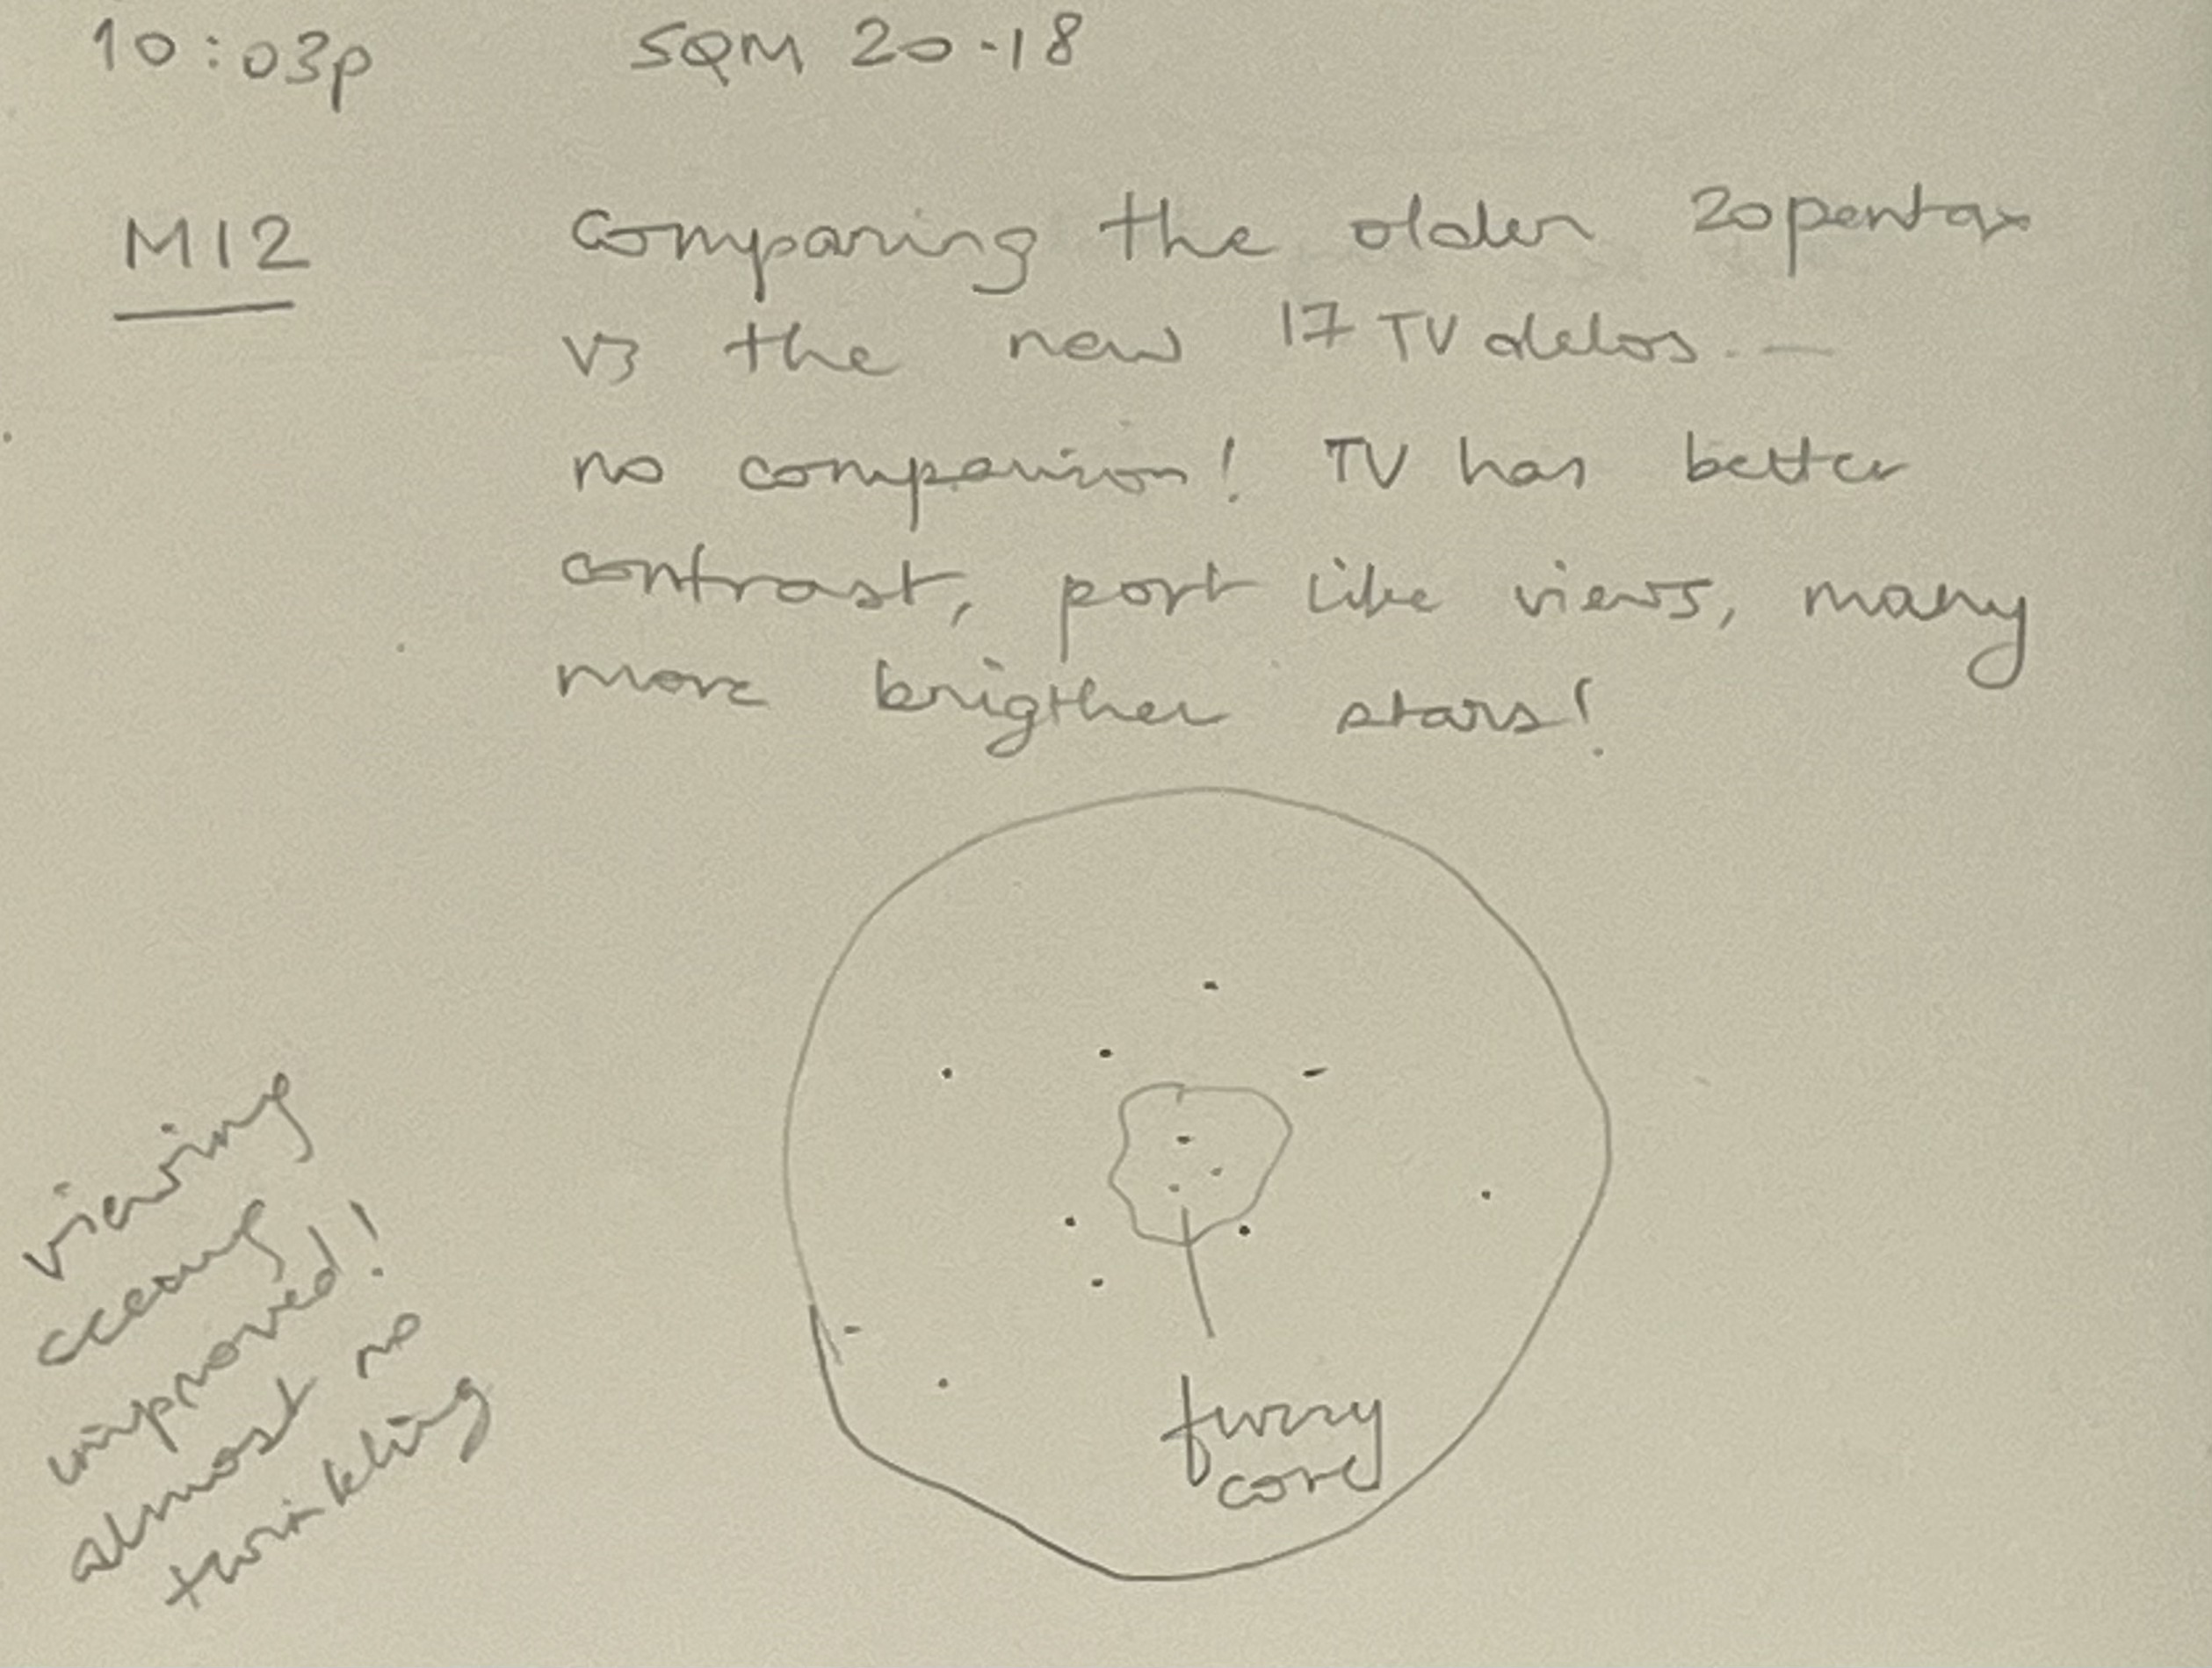 10:03p SQM 20.18
M12 Comparing the older 20pentax
vs the new 17 TV delos. —
no comparison! TV has better
contrast, port like views, many
more brigther stars!
viewing
seeing
improved!
almost no
twinkling
furry
core